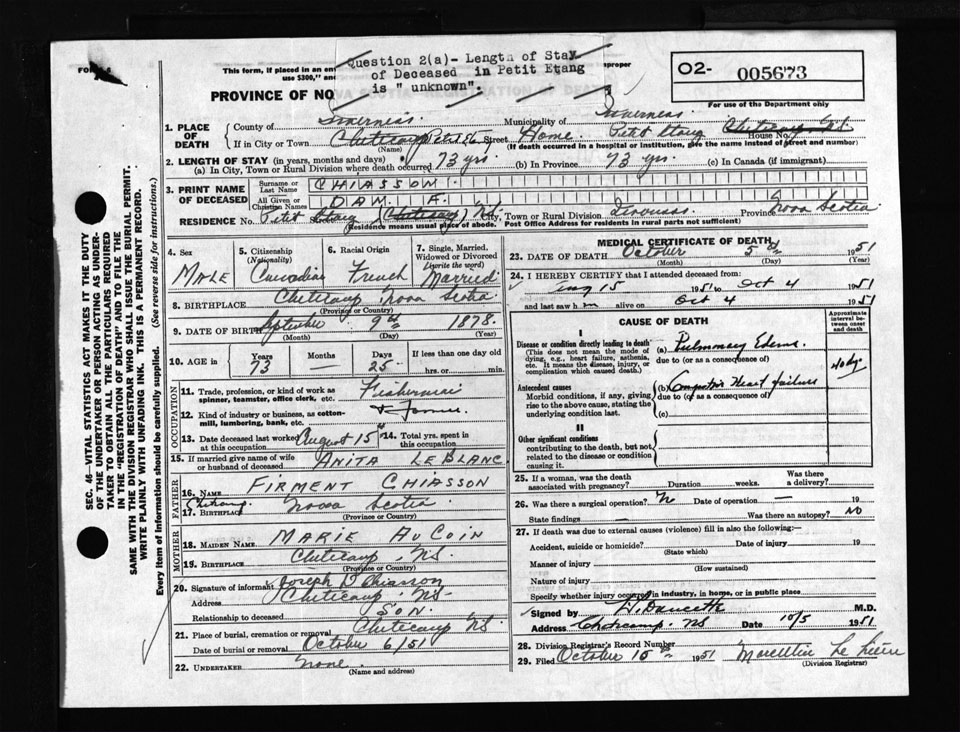 FOR
This form, if placed in an en
$300," and
Question 2(a)- Length of Stay
of Deceased in Petit Etang
is " unknown".
proper
O2- 005673
For use of the Department only
PROVINCE OF NO
1. PLACE OF DEATH
County of Inverness Municipality of Inverness
If in City or Town Cheticamp Petit Street Home Petit Etang House No. Cheticamp NS
(Name) (If death occurred in a hospital or institution, give the name instead of street and number)
2. LENGTH OF STAY (in years, months and days)
(a) In City, Town or Rural Division where death occurred 73 yrs. (b) In Province 73 yrs. (c) In Canada (if immigrant)
3. PRINT NAME OF DECEASED
Surname or Last Name CHIASSON
All Given or Christian Names DAM. A.
RESIDENCE No. Petit Etang (Cheticamp) NS. City, Town or Rural Division Inverness Province Nova Scotia
(Residence means usual place of abode. Post Office Address for residents in rural parts not sufficient)
4. Sex
Male
5. Citizenship (Nationality)
Canadian
6. Racial Origin
French
7. Single, Married, Widowed or Divorced (write the word)
Married
8. BIRTHPLACE Cheticamp Nova Scotia
(Province or Country)
9. DATE OF BIRTH September 9 1878.
(Month) (Day) (Year)
10. AGE in
Years 73
Months —
Days 25
If less than one day old
hrs. or min.
OCCUPATION
11. Trade, profession, or kind of work as spinner, teamster, office clerk, etc. Fisherman
12. Kind of industry or business, as cotton-mill, lumbering, bank, etc. + farmer
13. Date deceased last worked at this occupation August 15th
14. Total yrs. spent in this occupation
15. If married give name of wife or husband of deceased ANITA LE BLANC
FATHER
16. NAME FIRMENT CHIASSON
17. BIRTHPLACE Cheticamp Nova Scotia
(Province or Country)
MOTHER
18. MAIDEN NAME MARIE AUCOIN
19. BIRTHPLACE Cheticamp, NS.
(Province or Country)
20. Signature of informant Joseph D Chiasson
Address Cheticamp, NS
Relationship to deceased Son.
21. Place of burial, cremation or removal Cheticamp NS.
Date of burial or removal October 6/51
22. UNDERTAKER None.
(Name and address)
MEDICAL CERTIFICATE OF DEATH
23. DATE OF DEATH October 5 1951
(Month) (Day) (Year)
24. I HEREBY CERTIFY that I attended deceased from:
Aug 15 1951 to Oct 4 1951
and last saw h m alive on Oct 4 1951
CAUSE OF DEATH
Approximate interval between onset and death
I
Disease or condition directly leading to death
(This does not mean the mode of dying, e.g., heart failure, asthenia, etc. It means the disease, injury, or complication which caused death.)
(a) Pulmonary Edema.
due to (or as a consequence of)
Antecedent causes
Morbid conditions, if any, giving rise to the above cause, stating the underlying condition last.
(b) Heart failure
due to (or as a consequence of)
(c)
II
Other significant conditions contributing to the death, but not related to the disease or condition causing it.
25. If a woman, was the death associated with pregnancy? Duration weeks. Was there a delivery?
26. Was there a surgical operation? No Date of operation — 19
State findings — Was there an autopsy? No
27. If death was due to external causes (violence) fill in also the following:—
Accident, suicide or homicide? Date of injury 19
(State which)
Manner of injury
(How sustained)
Nature of injury
Specify whether injury occurred in industry, in home, or in public place
Signed by M.D.
Address Cheticamp. NS Date 10/5 1951
28. Division Registrar's Record Number
29. Filed October 15 1951
(Division Registrar)
SEC. 46—VITAL STATISTICS ACT MAKES IT THE DUTY
OF THE UNDERTAKER OR PERSON ACTING AS UNDER-
TAKER TO OBTAIN ALL THE PARTICULARS REQUIRED
IN THE "REGISTRATION OF DEATH" AND TO FILE THE
SAME WITH THE DIVISION REGISTRAR WHO SHALL ISSUE THE BURIAL PERMIT.
WRITE PLAINLY WITH UNFADING INK. THIS IS A PERMANENT RECORD.
Every item of information should be carefully supplied. (See reverse side for instructions.)